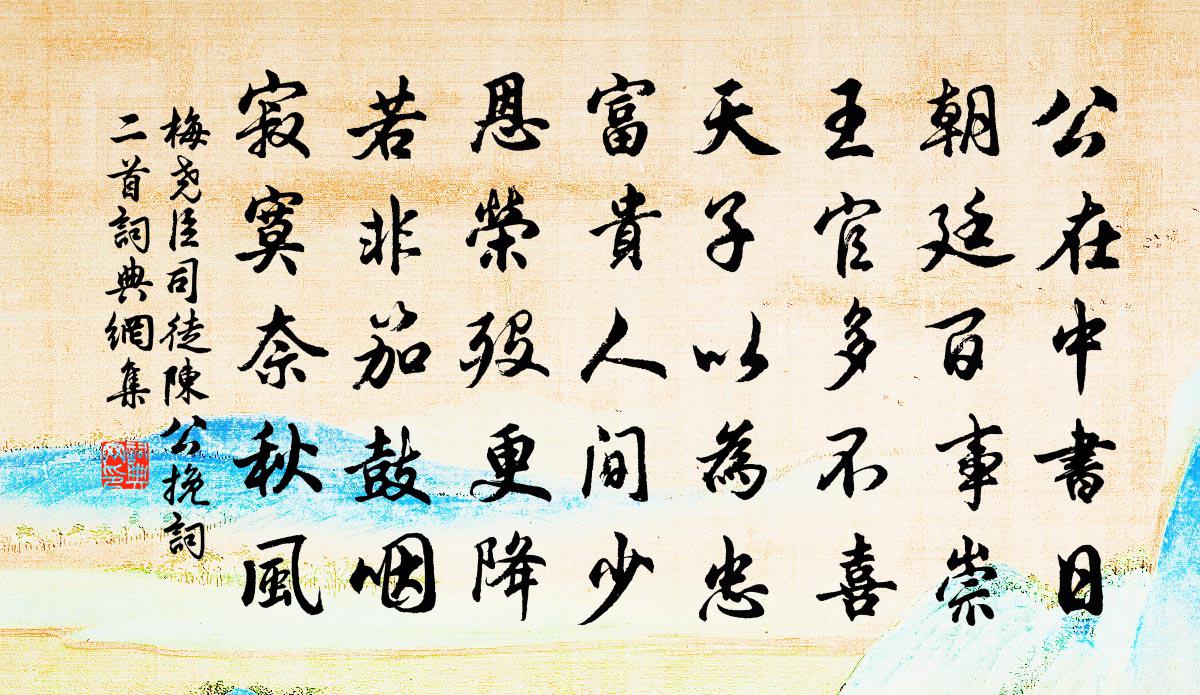 公在中書日
朝廷百事崇
王官多不喜
天子以為忠
富貴人間少
恩榮歿更降
若非笳鼓咽
寂寞奈秋風
梅堯臣司徒陳公挽詞
二首詞典網集